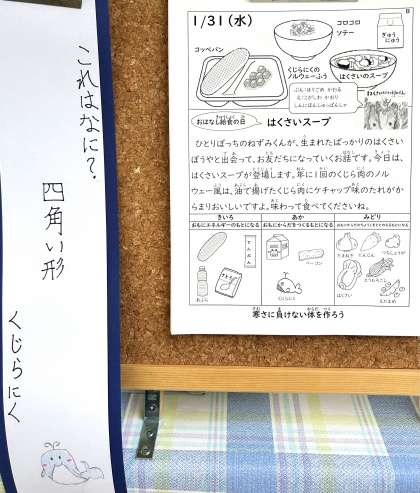 これはなに?
四角い形
くじらにく
1/31(水)
コッペパン
コロコロ
ソテー
ぎゅう
にゅう
くじらにくの
ノルウェーふう
はくさいのスープ
ぶん・はらごめ かわる
しんにほんしゅっぱんしゃ
おはなし給食の日
はくさいスープ
ひとりぼっちのねずみくんが、生まれたばっかりのはくさい
ぼうやと出会って、お友だちになっていくお話です。今日は、
はくさいスープが登場します。年に1回のくじら肉のノル
ウェー風は、油で揚げたくじら肉にケチャップ味のたれがか
らまりおいしいですよ。味わって食べてくださいね。
きいろ
あか
みどり
おもにエネルギーのもとになる
おもにからだをつくるもとになる
でんぷん
あぶら
さとう
ベーコン
くじらにく
たまねぎ
にんじん
つちしょうが
はくさい
とうもろこし
えだまめ
寒さに負けない体を作ろう